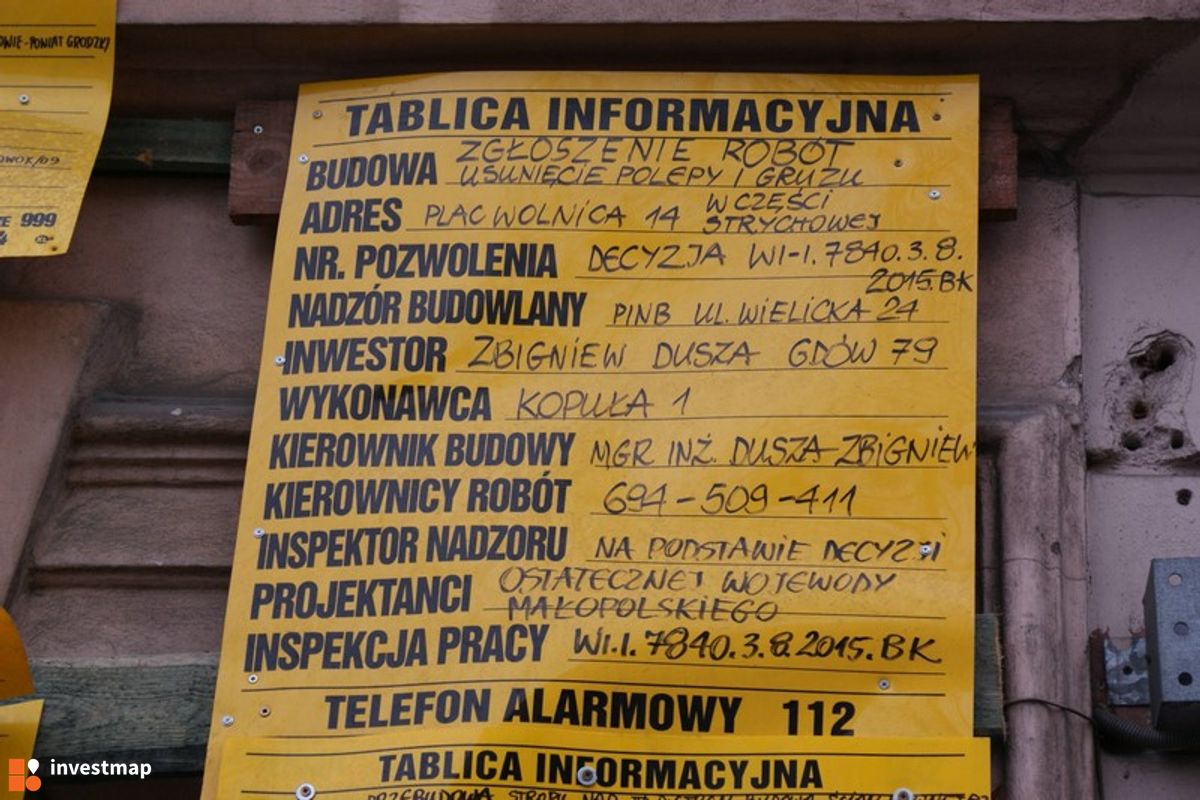 DNIE-POWIAT GRODZKI
999
TABLICA INFORMACYJNA
BUDOWA ZGŁOSZENIE ROBÓT
USUNIĘCIE POLEPY I GRUZU
ADRES PLAC WOLNICA 14 W CZĘŚCI
STRYCHOWEJ
NR. POZWOLENIA DECYZJA WI-I.7840.3.8.
2015.BK
NADZÓR BUDOWLANY PINB UL. WIELICKA 24
INWESTOR ZBIGNIEW DUSZA GDÓW 79
WYKONAWCA KOPUŁA 1
KIEROWNIK BUDOWY MGR INŻ. DUSZA ZBIGNIEW
KIEROWNICY ROBÓT 694-509-411
INSPEKTOR NADZORU NA PODSTAWIE DECYZJI
PROJEKTANCI OSTATECZNEJ WOJEWODY
MAŁOPOLSKIEGO
INSPEKCJA PRACY WI.I.7840.3.8.2015.BK
TELEFON ALARMOWY 112
TABLICA INFORMACYJNA
PRZEBUDOWA STROPU NAD
investmap